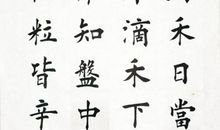 禾日當
滴禾下
知盤中
粒皆辛